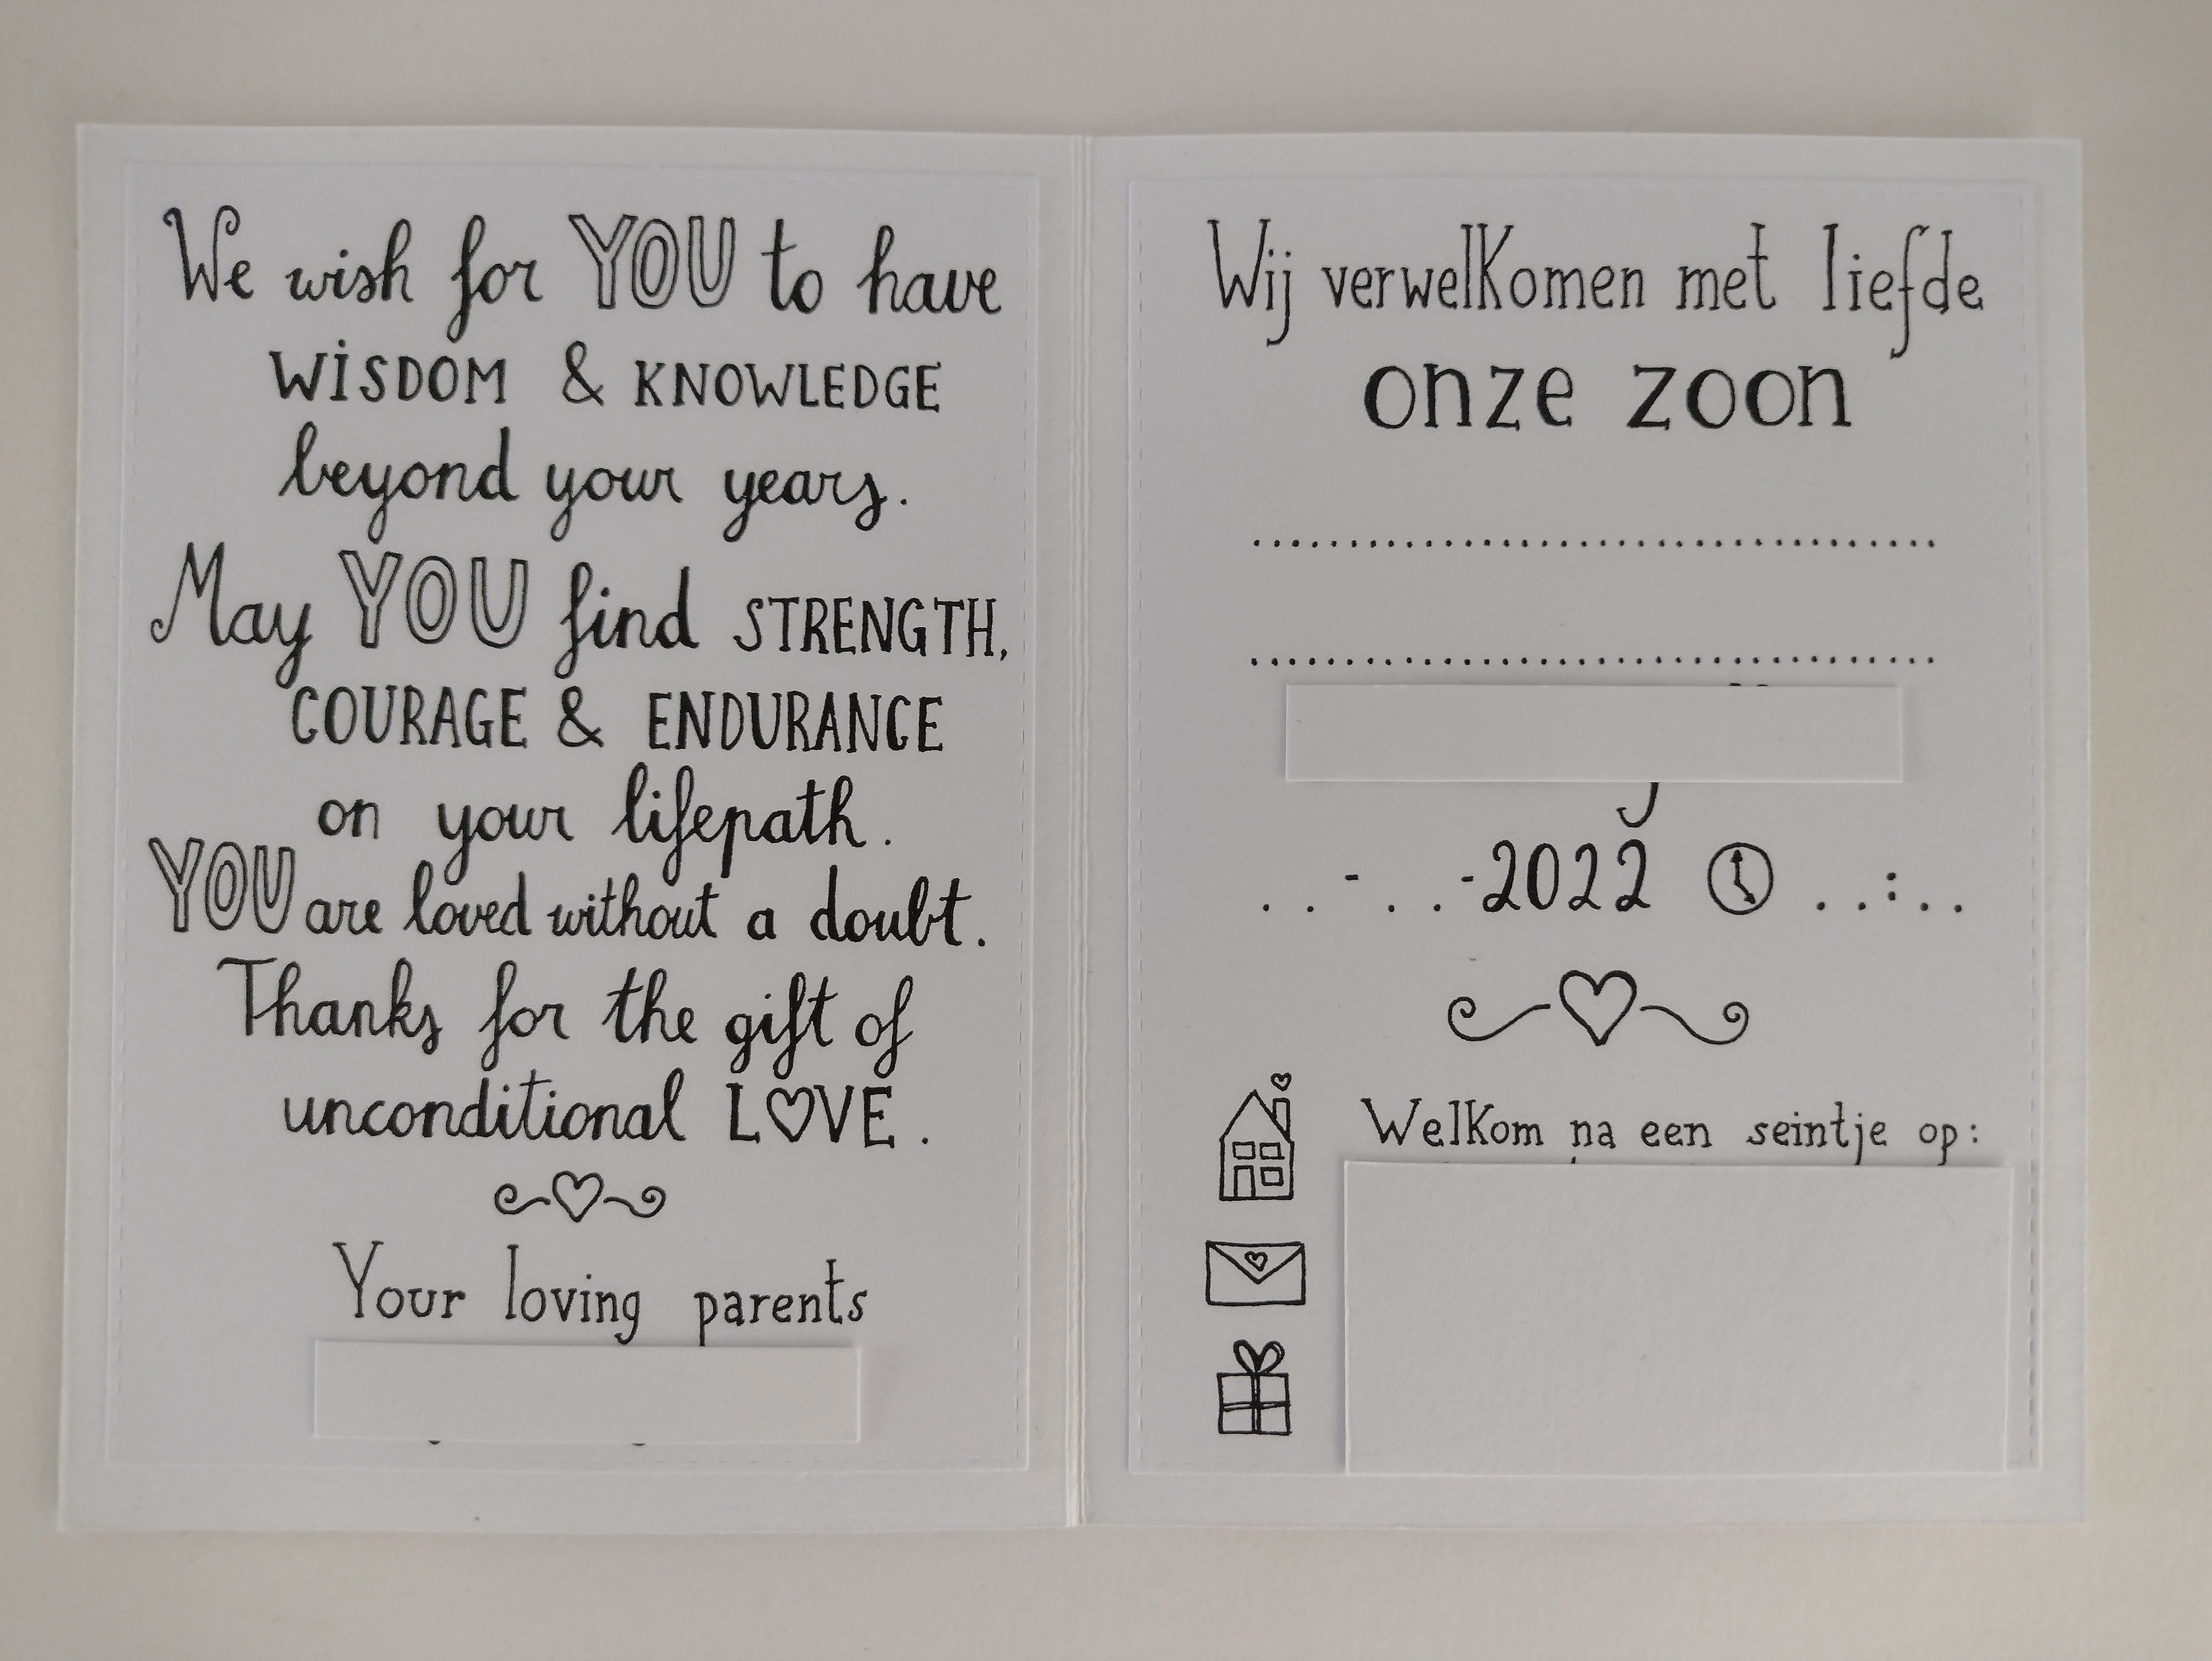 We wish for YOU to have
WISDOM & KNOWLEDGE
beyond your years.
May YOU find STRENGTH,
COURAGE & ENDURANCE
on your lifepath.
YOU are loved without a doubt.
Thanks for the gift of
unconditional LOVE.
Your loving parents
Wij verwelkomen met liefde
onze zoon
....................................
....................................
. . - . . -2022 . . : . .
Welkom na een seintje op: